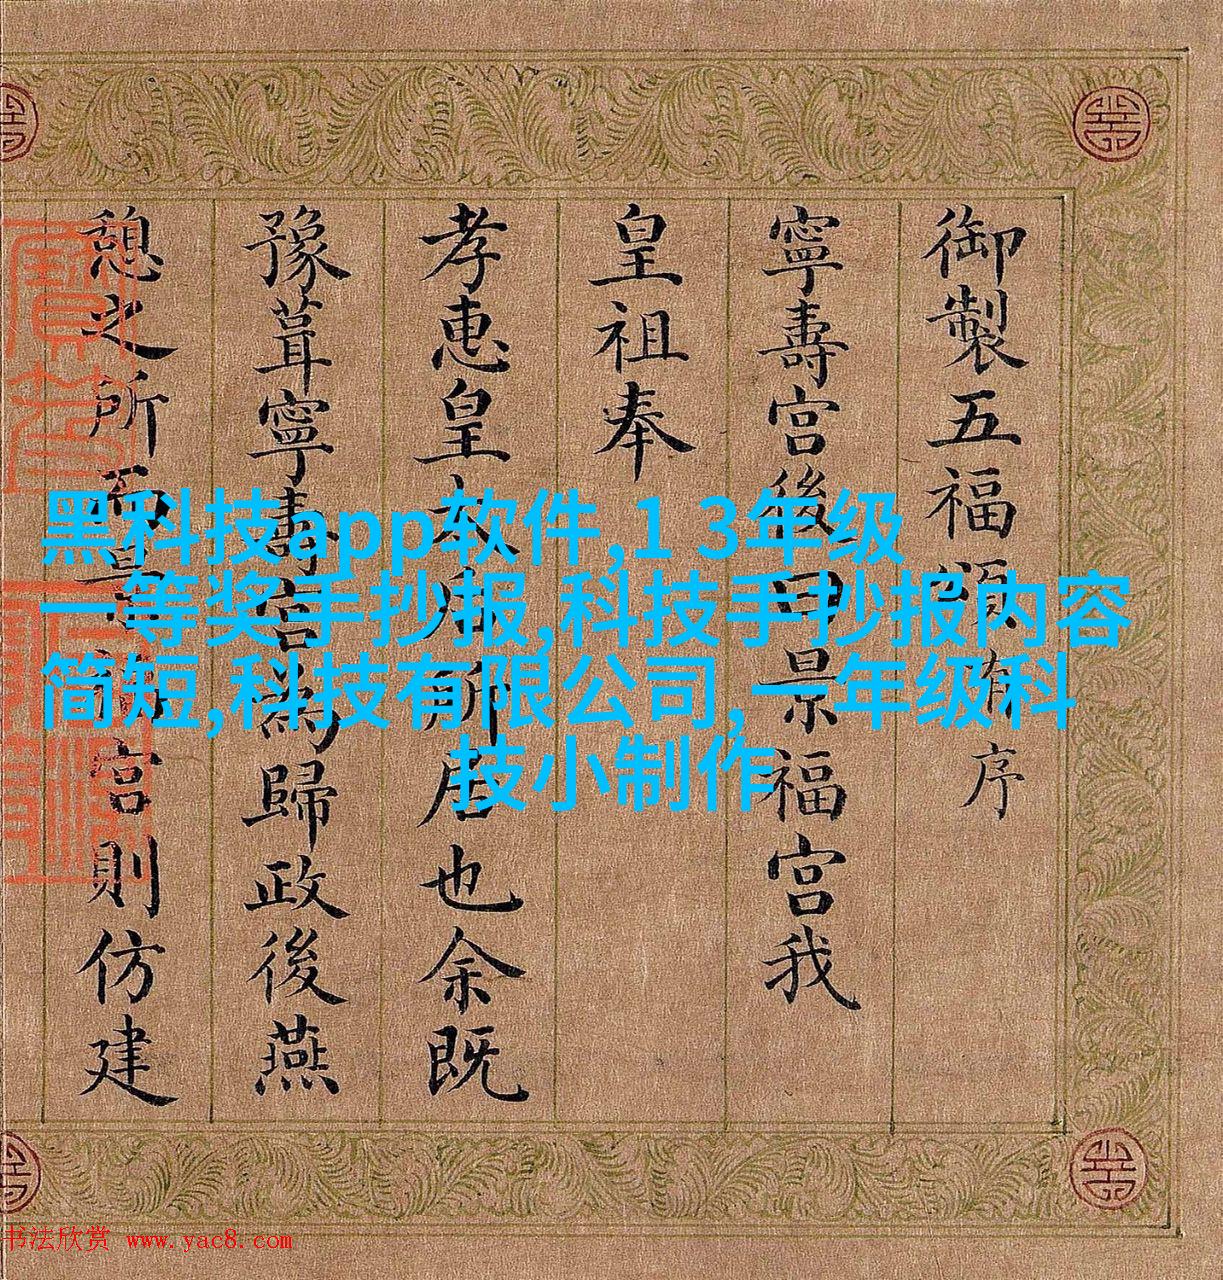 御製五福頌有序
寧壽宮後曰景福宮我
皇祖奉
孝惠皇太后所居也余既
豫葺寧壽宮為歸政後燕
憩之所而景福宮則仿建
黑科技app软件,1 3年级
一等奖手抄报,科技手抄报内容
简短,科技有限公司,一年级科
技小制作
书法欣赏 www.yac8.com